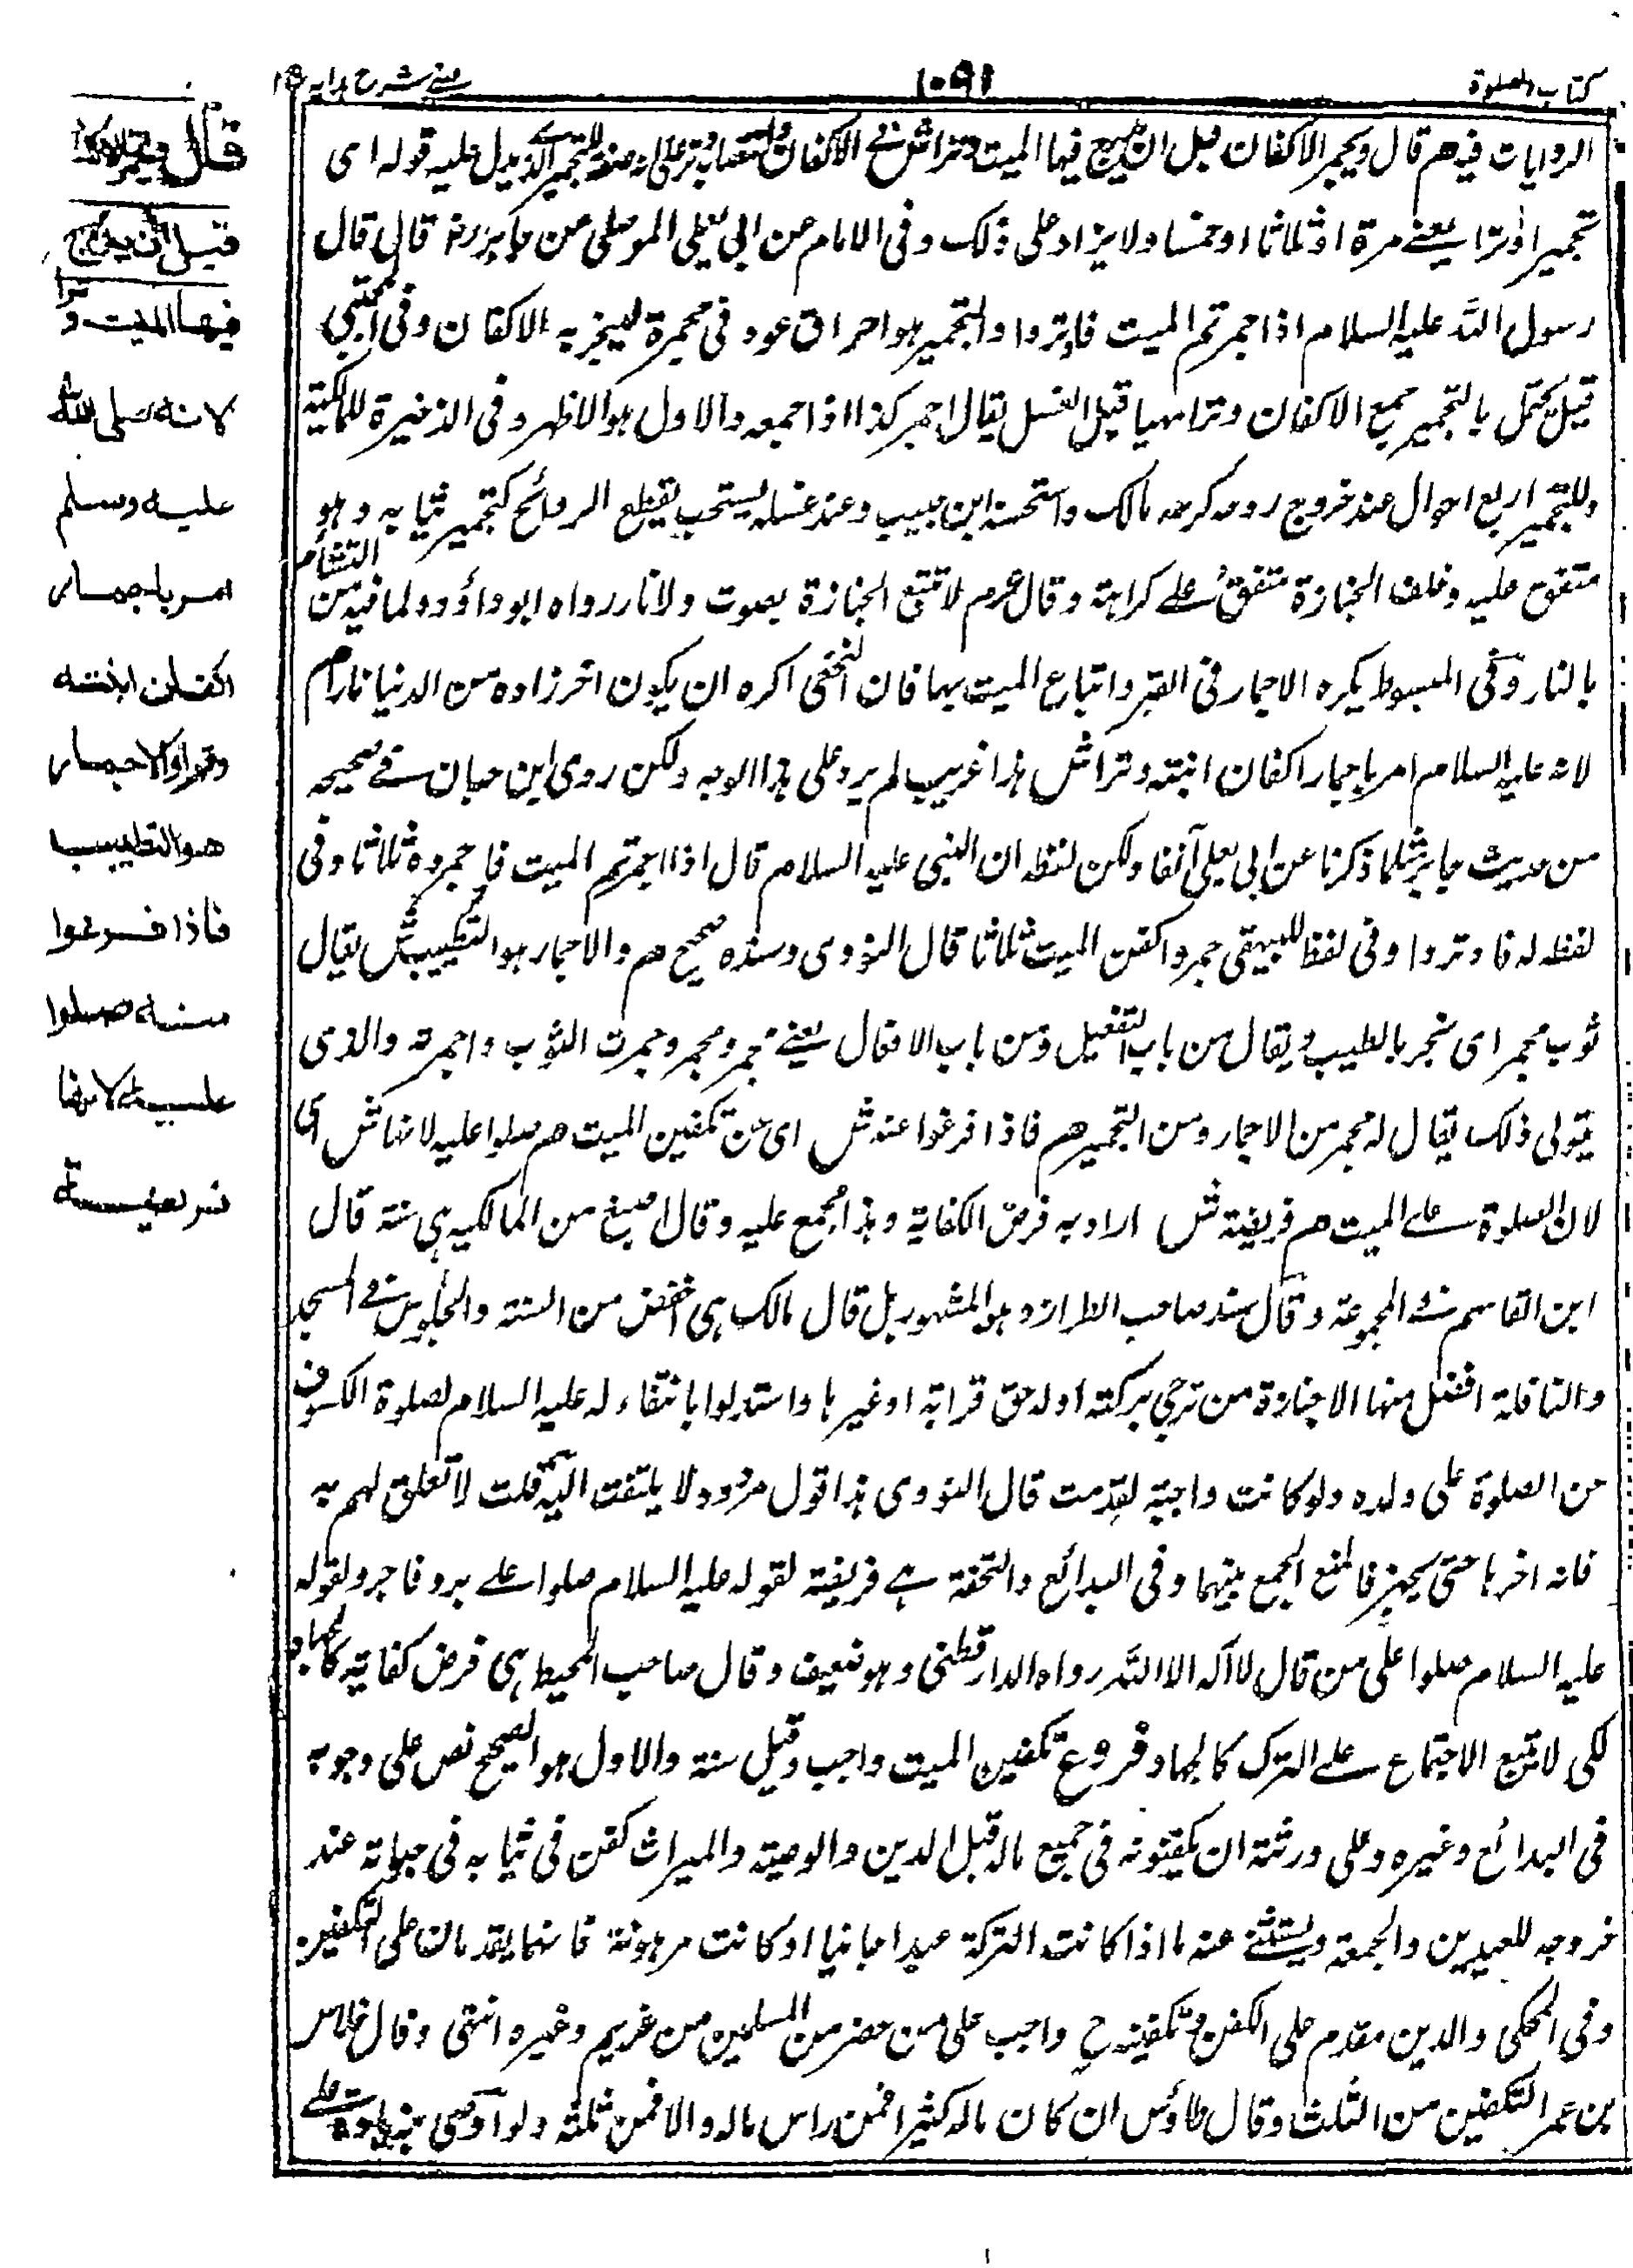 كتاب الصلوة
١٠٩١
عينى شرح هدايه ج ١
الروايات فيه م قال ويجمر الاكفان قبل ان يدرج فيها الميت وترا ش اى الاكفان وانتصاب وترا على انه صفة للتجمير الذى يدل عليه قوله اى
تجميرا وترا يعنى مرة او ثلاثا او خمسا ولا يزاد على ذلك وفى الامام عن ابى يعلى الموصلى عن جابر رضه قال قال
رسول الله عليه السلام اذا جمرتم الميت فاوتروا والتجمير هو احراق عود فى مجمرة ليبخر به الاكفان وفى المجتبى
قيل يحتمل بالتجمير جمع الاكفان وترا مهيا قبل الغسل يقال اجمر كذا اذا جمعه والاول هو الاظهر وفى الذخيرة للمالكية
وللتجمير اربع احوال عند خروج روحه كرهه مالك واستحسنه ابن حبيب وعند غسله يستحب يقطع الروائح كتجمير ثيابه وهو
متفق عليه وخلف الجنازة متفق على كراهته وقال عم لا تتبع الجنازة بصوت ولا نار رواه ابو داؤد ولما فيه من التشاؤم
بالنار وفى المبسوط يكره الاجمار فى القبر واتباع الميت بها فان النخعى اكره ان يكون اخر زاده من الدنيا نارا م
لانه عليه السلام امر باجمار اكفان ابنته وترا ش هذا غريب لم يرد على هذا الوجه ولكن روى ابن حبان فى صحيحه
من حديث جابر مثلما ذكرنا عن ابى يعلى آنفا ولكن لفظه ان النبى عليه السلام قال اذا اجمرتم الميت فاجمروه ثلاثا وفى
لفظ له فاوتروا وفى لفظ للبيهقى جمروا كفن الميت ثلاثا قال النووى وسنده صحيح م والاجمار هو التطييب ش يقال
ثوب مجمر اى مبخر بالطيب ويقال من باب التفعيل ومن باب الافعال يعنى مجمر ومجمر وجمرت الثوب واجمرته والذى
يتولى ذلك يقال له مجمر من الاجمار ومن التجمير م فاذا فرغوا عنه ش اى من تكفين الميت م صلوا عليه لانها ش اى
لان الصلوة على الميت م فريضة ش اراد به فرض الكفاية وهذا مجمع عليه وقال اصبغ من المالكيه هى سنة قال
ابن القاسم فى المجموعة وقال سند صاحب الطراز وهو المشهور بل قال مالك هى اخفض من السنة والجلوس فى المسجد
والنافلة افضل منها الا جنازة من ترجى بركته او له حق قرابة او غيرها واستدلوا بانتقاء له عليه السلام لصلوة الكسوف
عن الصلوة على ولده ولو كانت واجبة لقدمت قال النووى هذا قول مردود لا يلتفت اليه قلت لا تعلق لهم به
فانه اخرها حتى يجهز فالمنع الجمع بينهما وفى البدائع والتحفة هى فريضة لقوله عليه السلام صلوا على بر وفاجر ولقوله
عليه السلام صلوا على من قال لا آله الا الله رواه الدارقطنى وهو ضعيف وقال صاحب المحيط هى فرض كفاية كالجهاد
لكى لا تتبع الاجتماع على الترك كالجهاد فروع تكفين الميت واجب وقيل سنة والاول هو الصحيح نص على وجوبه
فى البدائع وغيره وعلى ورثته ان يكفنونه فى جميع ماله قبل الدين والوصية والميراث كفن فى ثيابه فى حياته عند
خروجه للعيدين والجمعة ويستثنى عنه ما اذا كانت التركة عبدا جانيا او كانت مرهونة فانهما يقدمان على التكفين
وفى المحلى والدين مقدم على الكفن وتكفينه ح واجب على من حضر من المسلمين من غريم وغيره انتهى وقال خلاس
بن عمر التكفين من الثلث وقال طاؤس ان كان ماله كثيرا فمن راس ماله والا فمن ثلثه ولو اوصى على
قال ويجمر الاكفان
قبل ان يدرج
فيها الميت وترا
لانه صلى الله
عليه وسلم
امر باجمار
اكفان ابنته
وترا والاجمار
هو التطييب
فاذا فرغوا
منه صلوا
عليه لانها
فريضة